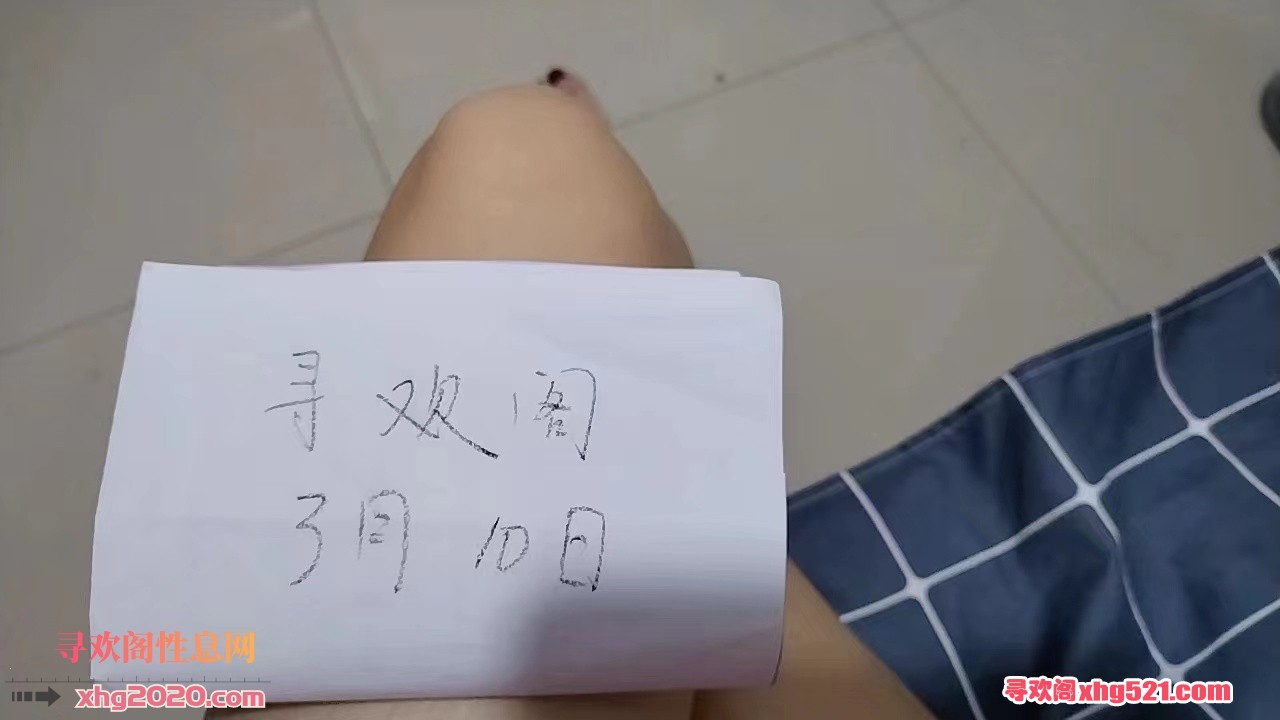 寻欢阁
3月10日
寻欢阁性息网
xhg2020.com
寻欢阁xhg521.com